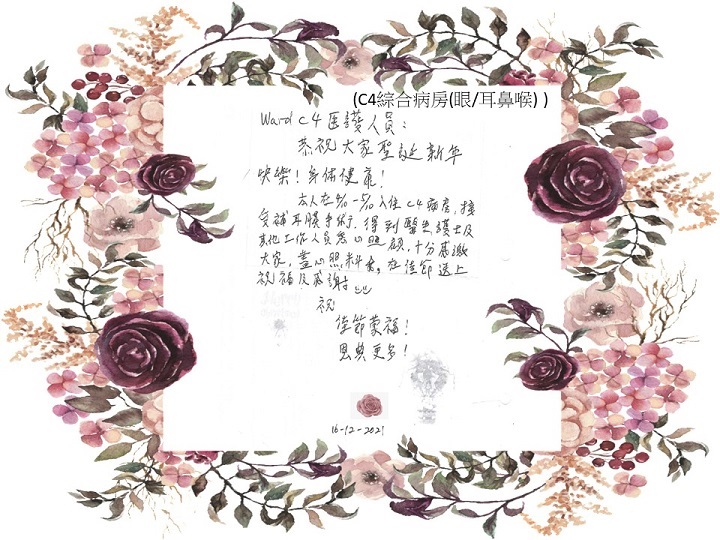 (C4綜合病房(眼/耳鼻喉) )
Ward C4 医護人員：
恭祝大家聖誕新年
快樂！身体健康！
本人在 入住 C4 病房，接
受補耳膜手術，得到醫生護士及
其他工作人員悉心照顧，十分感激
大家，盡心照料，在佳節送上
祝福及感謝
祝
佳節蒙福！
恩典更多！
16-12-2021